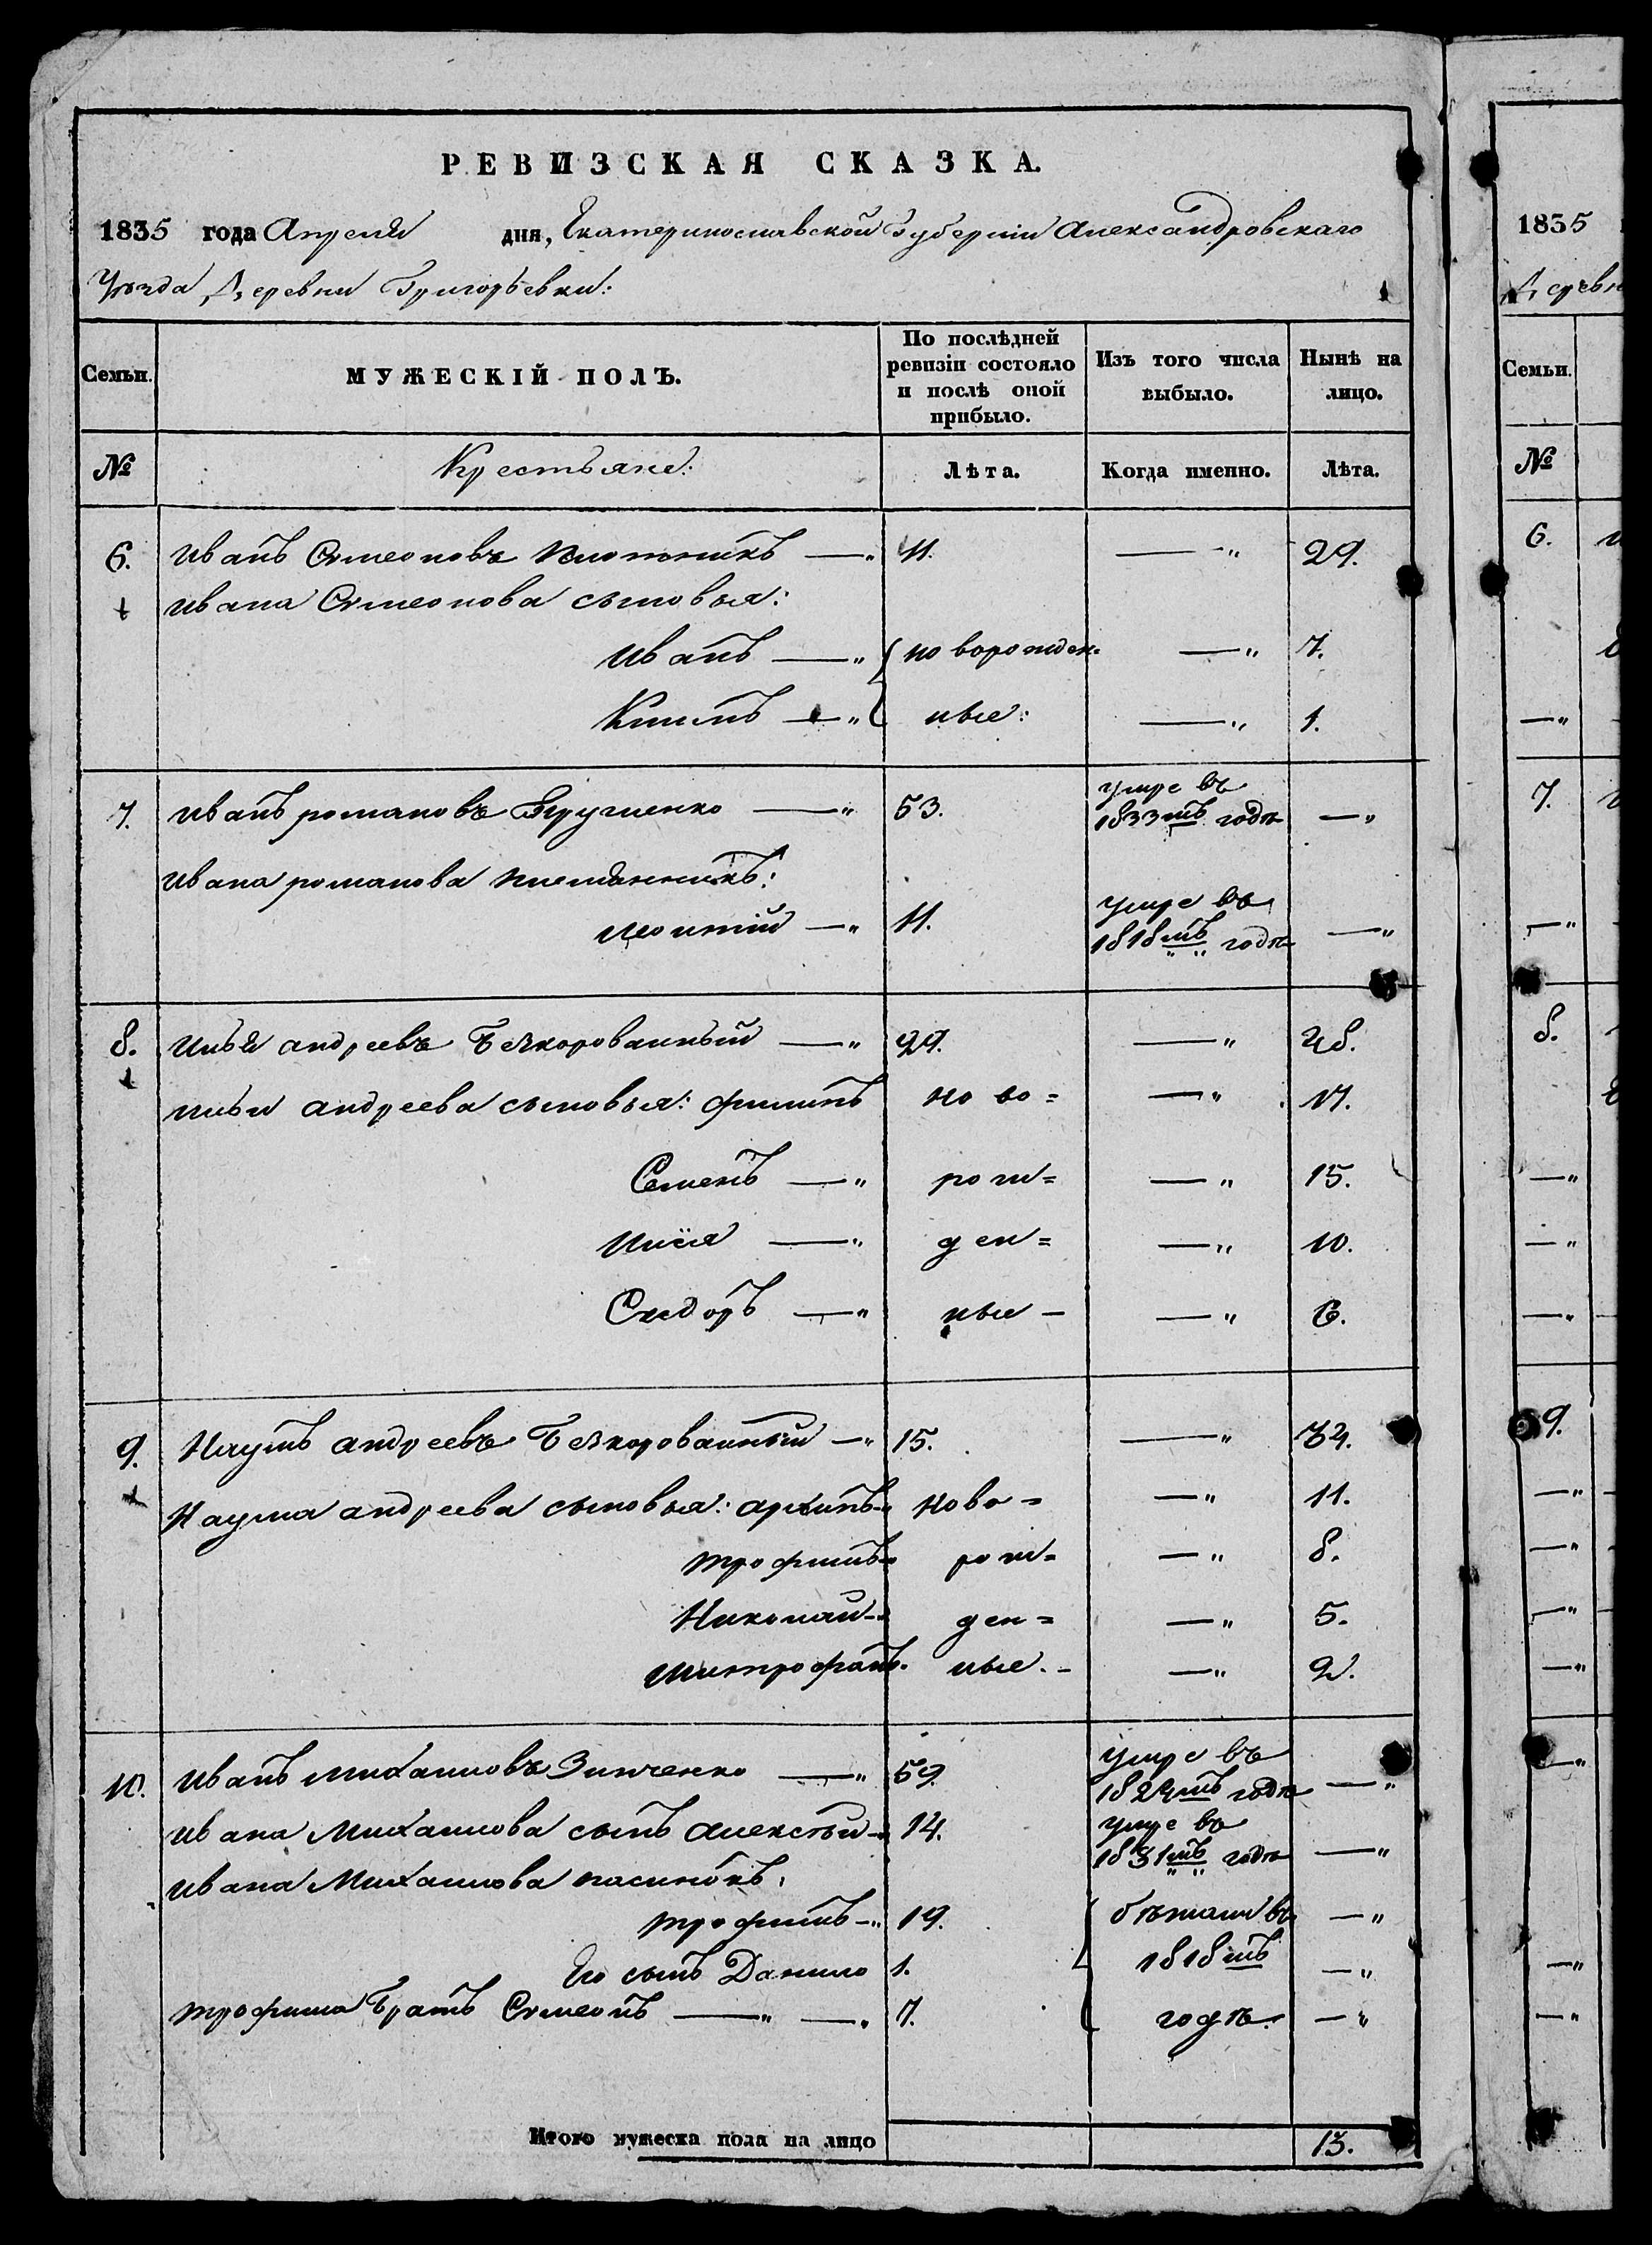 РЕВИЗСКАЯ СКАЗКА.
1835 года Апреля дня, Екатеринославской Губернии Александровскаго
Уѣзда Деревни Григорьевки:
Семьи. МУЖЕСКІЙ ПОЛЪ. По послѣдней ревизіи состояло и послѣ оной прибыло. Изъ того числа выбыло. Нынѣ на лицо.
№ Крестьяне: Лѣта. Когда именно. Лѣта.
6. Иванъ Симеоновъ Плотникъ —„ 11. —„ 29.
Ивана Симеонова сыновья:
Иванъ —„ новорожден= —„ 7.
—„ ные: —„ 1.
7. Иванъ романовъ —„ 53. умре въ 1833мъ годѣ —„
Ивана романова племянникъ:
леонтій —„ 11. умре въ 1818мъ годѣ —„
8. Илья андреевъ Безкорованный —„ 29. —„ 48.
Ильи андреева сыновья: филипъ ново= —„ 17.
Семенъ —„ рож= —„ 15.
Илія —„ ден= —„ 10.
Сидоръ —„ ные — —„ 6.
9. Наумъ андреевъ Безкорованный —„ 15. —„ 34.
Наума андреева сыновья: архипъ —„ ново= —„ 11.
трофимъ —„ рож= —„ 8.
Николай —„ ден= —„ 5.
митрофанъ. ные. — —„ 2.
10. Иванъ михаиловъ Зинченко —„ 59. умре въ 1824мъ годѣ —„
Ивана Михаилова сынъ алексѣй —„ 14. умре въ 1831мъ годѣ —„
Ивана Михаилова пасинокъ:
трофимъ —„ 19. бѣжали въ —„
Его сынъ Данило 1. 1818мъ —„
трофима братъ Симеонъ —„ —„ 7. годѣ. —„
Итого мужеска пола на лицо 13.
1835
Деревн
Семьи.
№
6.
—„
7.
—„
8.
—„
—„
—„
9.
—„
—„
—„
—„
—„
—„
—„